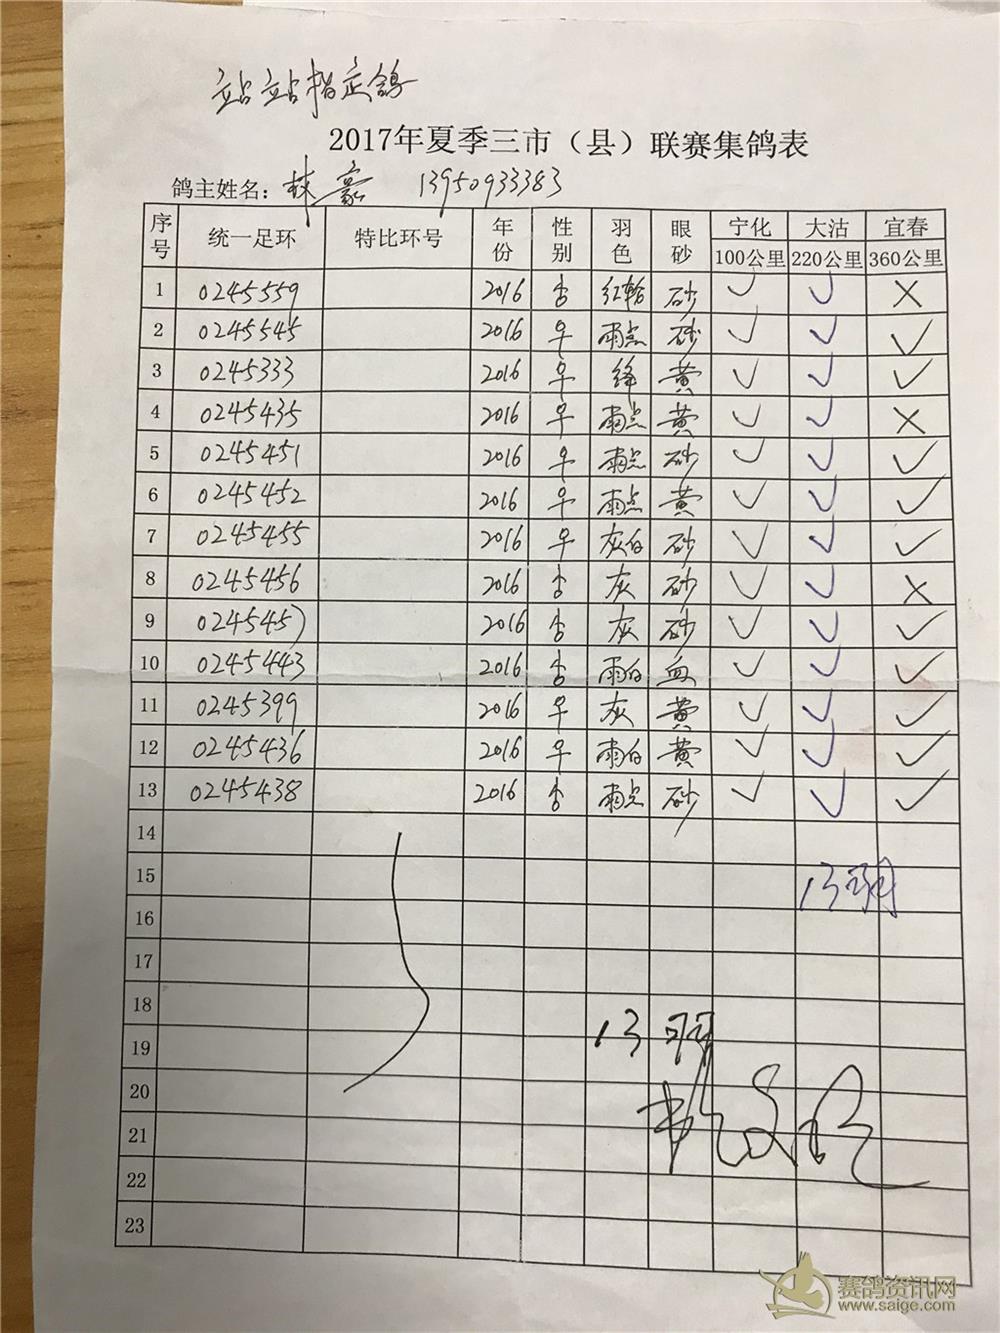 站站指定鸽
2017年夏季三市（县）联赛集鸽表
鸽主姓名：林豪 13950933383
序号 统一足环 特比环号 年份 性别 羽色 眼砂 宁化 大沽 宜春
100公里 220公里 360公里
1 0245559 2016 红轮 砂 ✓ ✓ ×
2 0245545 2016 雨点 砂 ✓ ✓ ✓
3 0245333 2016 绛 黄 ✓ ✓ ✓
4 0245435 2016 雨点 黄 ✓ ✓ ×
5 0245451 2016 雨点 砂 ✓ ✓ ✓
6 0245452 2016 雨点 黄 ✓ ✓ ✓
7 0245455 2016 灰白 砂 ✓ ✓ ✓
8 0245456 2016 灰 砂 ✓ ✓ ×
9 0245457 2016 灰 砂 ✓ ✓ ✓
10 0245443 2016 雨白 血 ✓ ✓ ✓
11 0245399 2016 灰 黄 ✓ ✓ ✓
12 0245436 2016 雨白 黄 ✓ ✓ ✓
13 0245438 2016 雨点 砂 ✓ ✓ ✓
14
15 13羽
16
17
18
19 13羽
20
21
22
23
赛鸽资讯网
www.saige.com